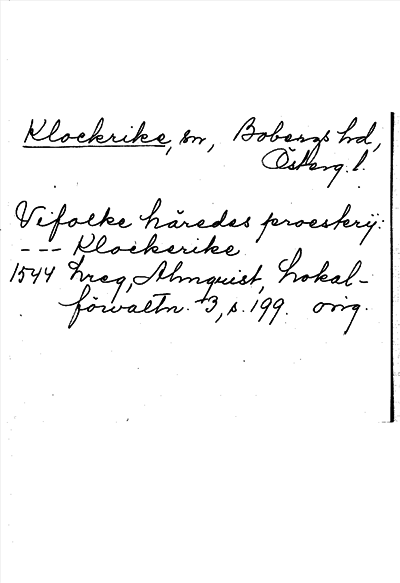 Klockrike, sn, Bobergs hd,
Österg. l.
Vifolke häredes proesterij:
--- Klockerike
1544 hreg, Almquist, Lokal-
förvaltn. 3, s. 199. orig.